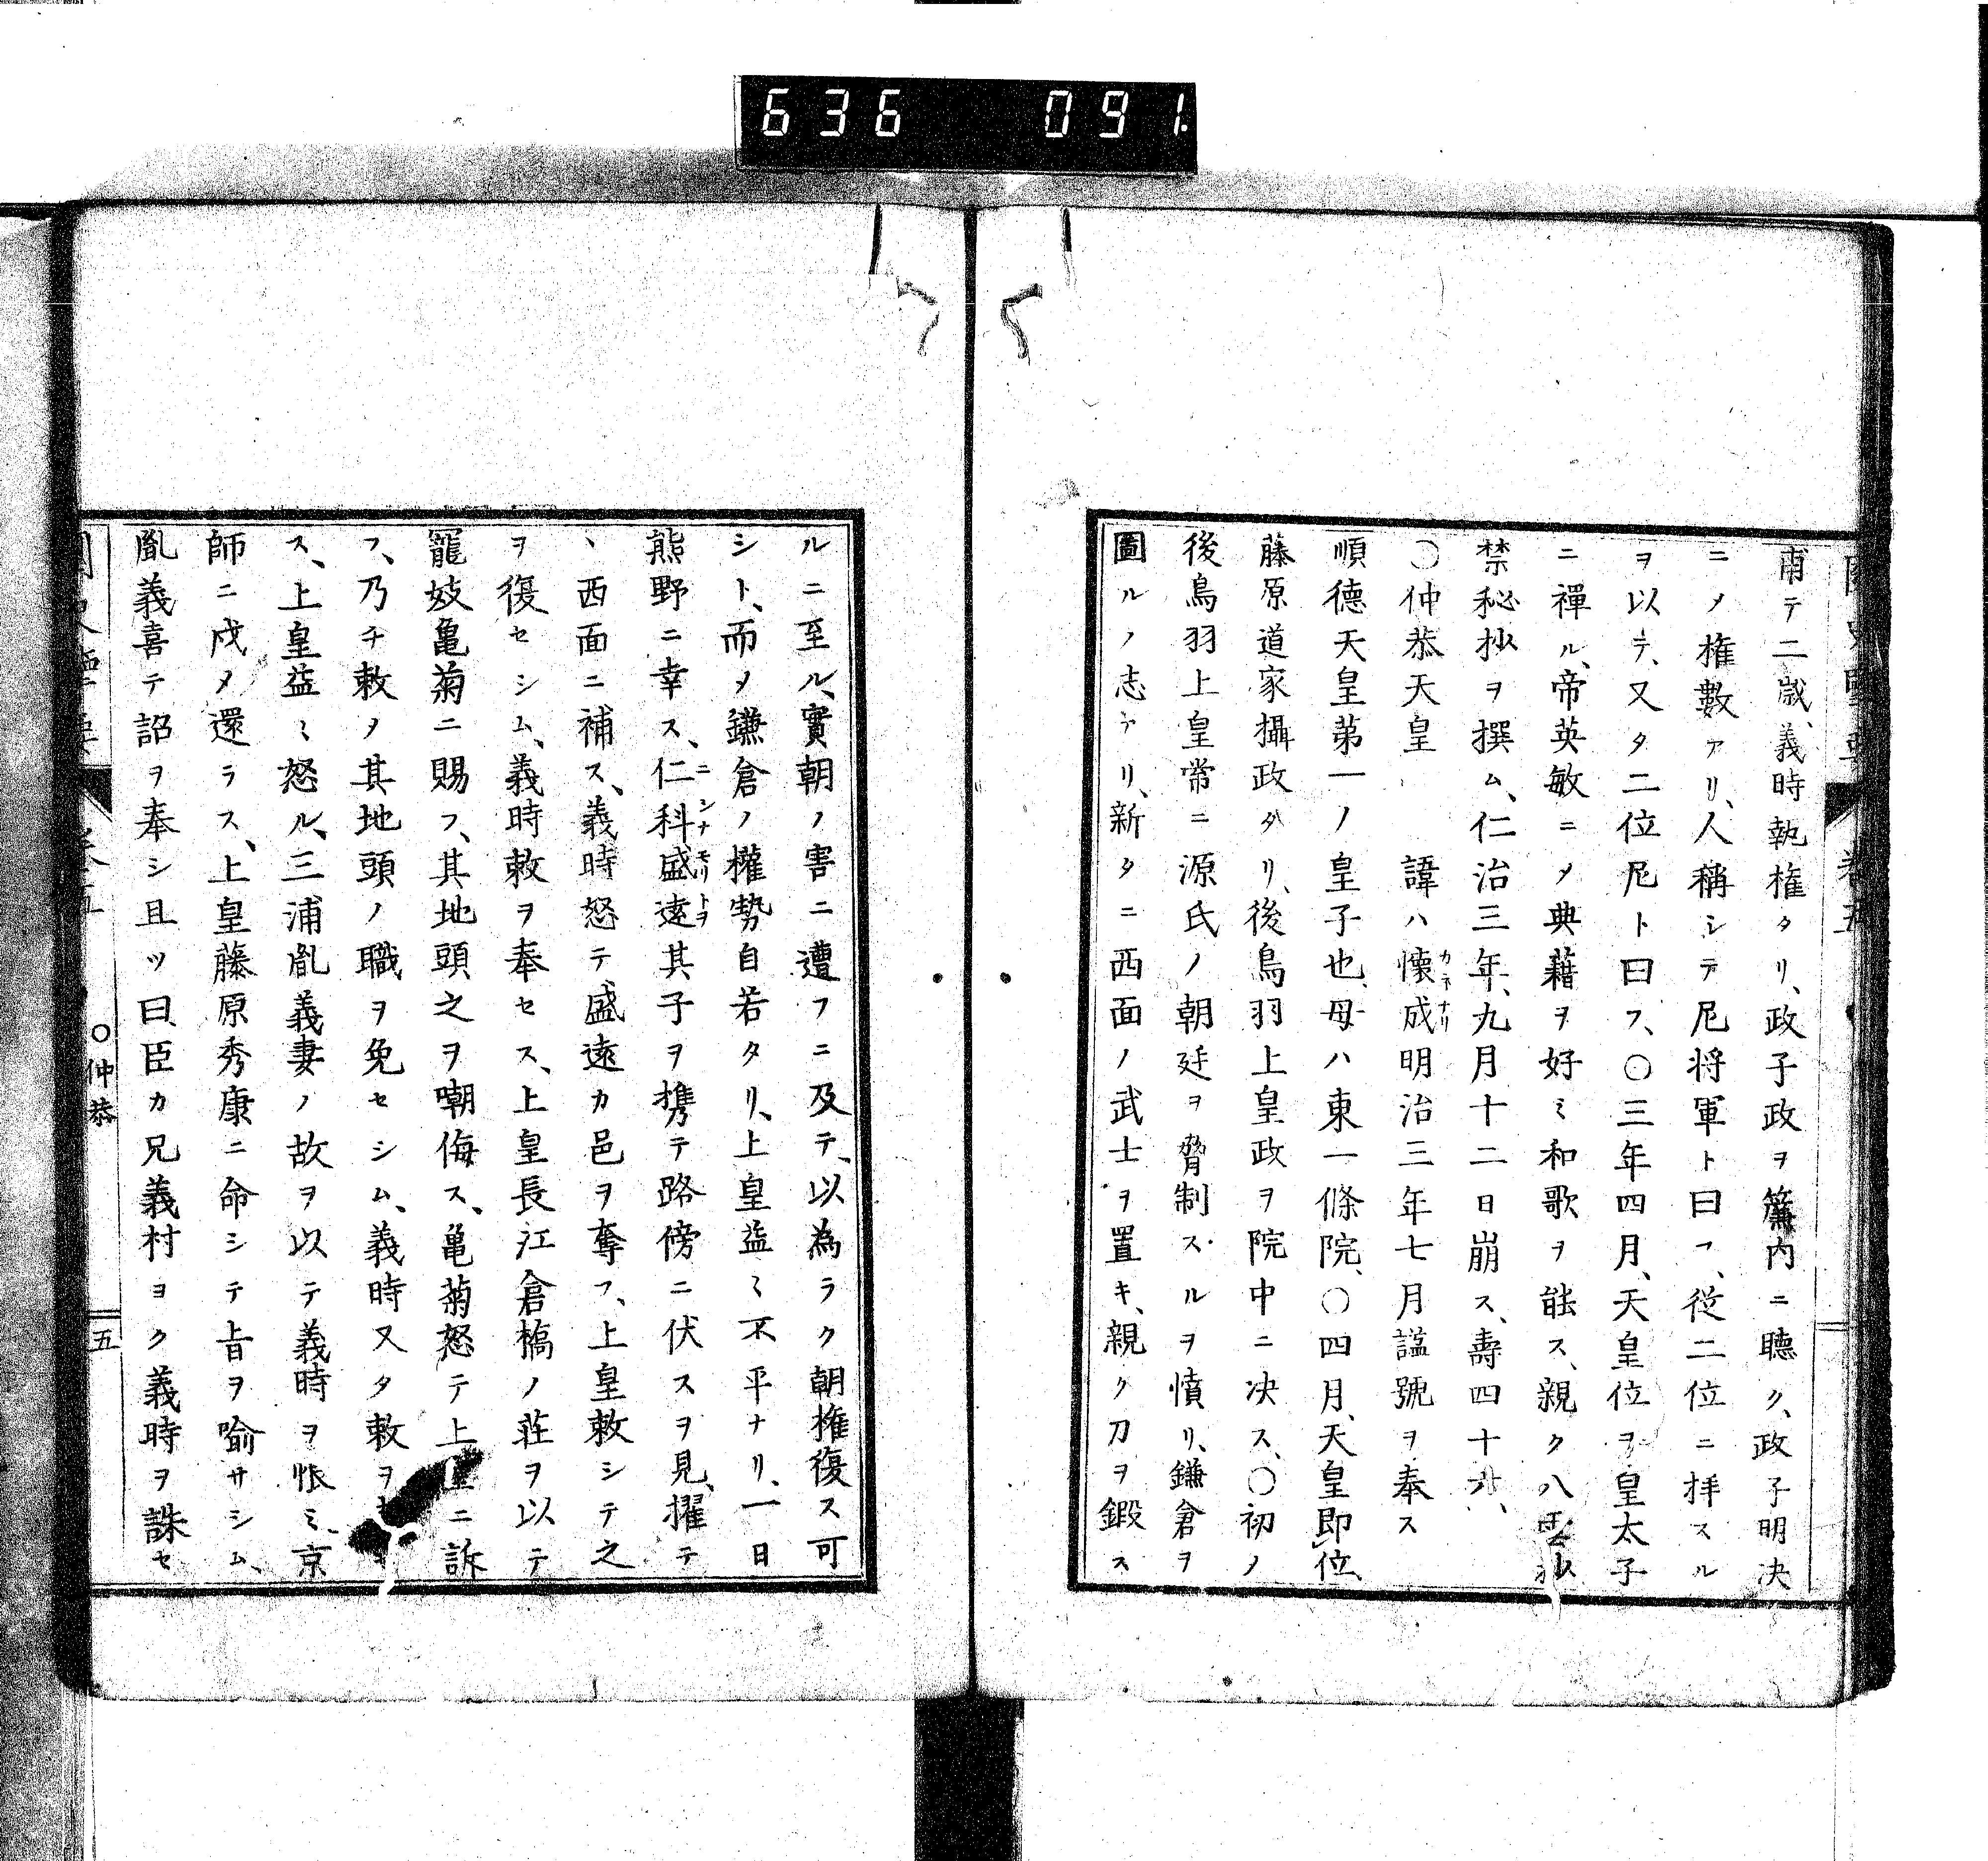 636 091.
甫テ二歳、義時執権タリ、政子政ヲ簾内ニ聴ク、政子明决
ニメ権數アリ、人稱シテ尼将軍ト曰フ、従二位ニ拝スル
ヲ以テ、又タ二位尼ト曰フ、〇三年四月、天皇位ヲ皇太子
ニ禪ル、帝英敏ニメ典籍ヲ好ミ和歌ヲ能ス、親ク八雲抄
禁秘抄ヲ撰ム、仁治三年、九月十二日崩ス、壽四十六、
〇仲恭天皇 諱ハ懐成明治三年七月諡號ヲ奉ス
カネナリ
順德天皇第一ノ皇子也、母ハ東一條院、〇四月、天皇即位、
藤原道家攝政タリ、後鳥羽上皇政ヲ院中ニ决ス、〇初ノ
後鳥羽上皇常ニ源氏ノ朝廷ヲ脅制スルヲ憤リ、鎌倉ヲ
圖ルノ志アリ、新タニ西面ノ武士ヲ置キ、親ク刀ヲ鍛ス
ルニ至ル、實朝ノ害ニ遭フニ及テ、以為ラク朝権復ス可
シト、而メ鎌倉ノ權勢自若タリ、上皇益ミ不平ナリ、一日
熊野ニ幸ス、仁科盛遠其子ヲ携テ路傍ニ伏スヲ見、擢テ
ニシナモリトヲ
丶西面ニ補ス、義時怒テ、盛遠カ邑ヲ奪フ、上皇敕シテ之
ヲ復セシム、義時敕ヲ奉セス、上皇長江倉橋ノ荘ヲ以テ
寵妓亀菊ニ賜フ、其地頭之ヲ嘲侮ス、亀菊怒テ上皇ニ訴
フ、乃チ敕メ其地頭ノ職ヲ免セシム、義時又タ敕ヲ
ス、上皇益ミ怒ル、三浦胤義妻ノ故ヲ以テ義時ヲ悵ミ、京
師ニ戍メ還ラス、上皇藤原秀康ニ命シテ旨ヲ喻サシム、
胤義喜テ詔ヲ奉シ且ツ曰、臣カ兄義村ヨク義時ヲ誅セ
〇仲恭 五